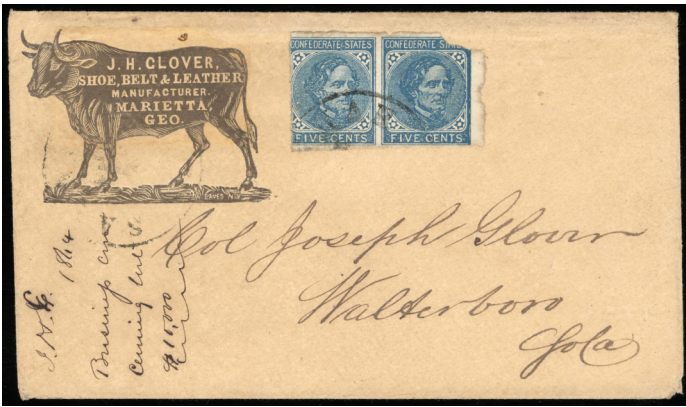 J. H. GLOVER,
SHOE, BELT & LEATHER
MANUFACTURER.
MARIETTA,
GEO.
CONFEDERATE STATES
FIVE CENTS
CONFEDERATE STA
FIVE CENTS
Col Joseph Glover
Walterboro
So Ca
J. H. G. 1864
Business
$10,000